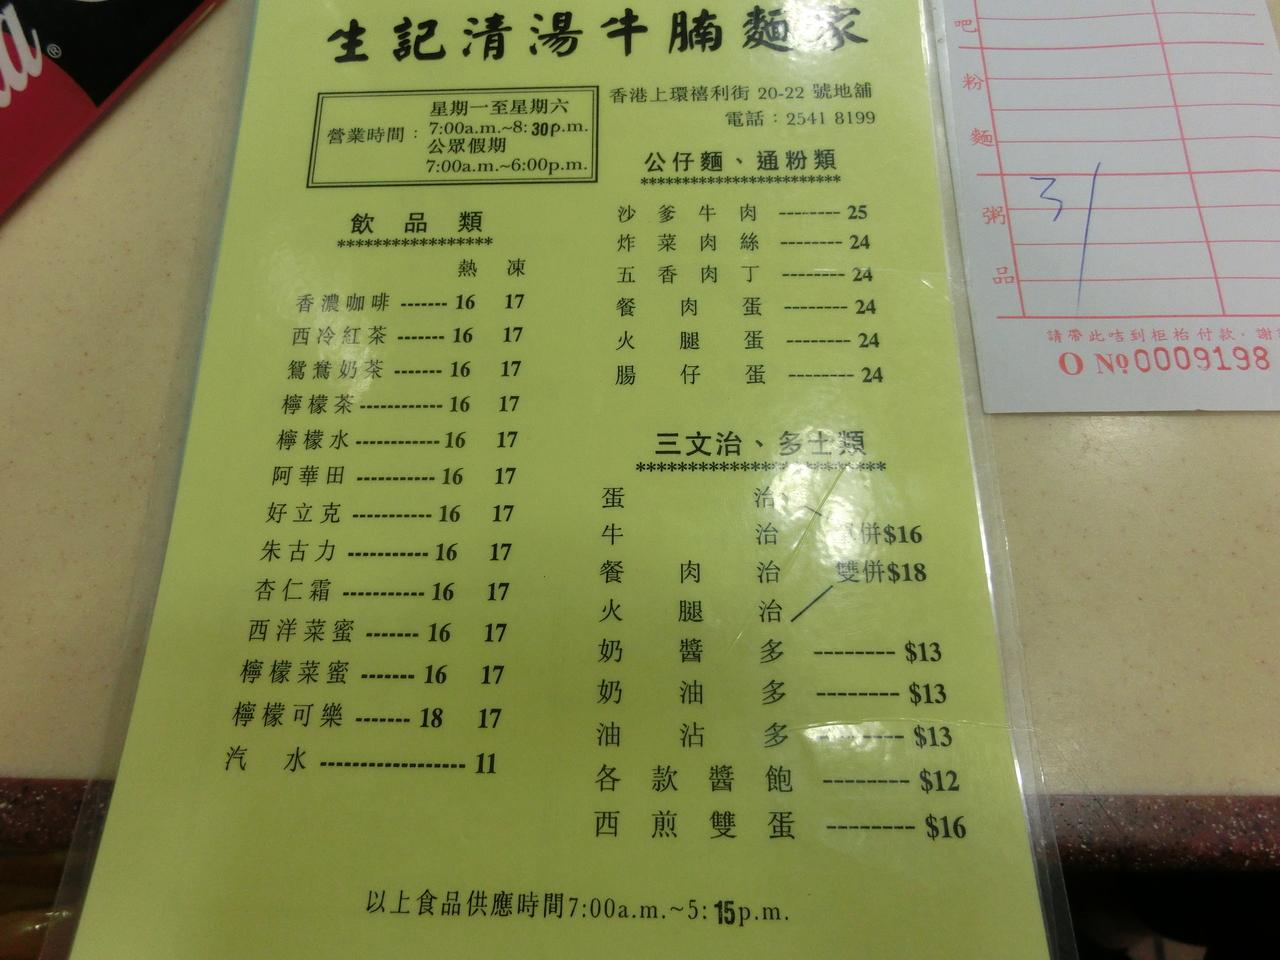 生記清湯牛腩麵家
香港上環禧利街 20-22 號地舖
電話：2541 8199
營業時間：
星期一至星期六
7:00a.m.~8:30p.m.
公眾假期
7:00a.m.~6:00p.m.
飲品類
*****************
熱 凍
香濃咖啡 ------- 16 17
西冷紅茶 ------- 16 17
鴛鴦奶茶 ------- 16 17
檸檬茶 ------------ 16 17
檸檬水 ------------ 16 17
阿華田 ----------- 16 17
好立克 ----------- 16 17
朱古力 ----------- 16 17
杏仁霜 ----------- 16 17
西洋菜蜜 ------- 16 17
檸檬菜蜜 ------- 16 17
檸檬可樂 ------- 18 17
汽水 ------------------- 11
公仔麵、通粉類
*********************
沙爹牛肉 -------- 25
炸菜肉絲 -------- 24
五香肉丁 -------- 24
餐肉蛋 -------- 24
火腿蛋 -------- 24
腸仔蛋 -------- 24
三文治、多士類
************************
蛋治
牛治 併$16
餐肉治 雙併$18
火腿治
奶醬多 -------- $13
奶油多 -------- $13
油沾多 -------- $13
各款醬飽 -------- $12
西煎雙蛋 -------- $16
以上食品供應時間7:00a.m.~5:15p.m.
吧
粉
麵
粥
品
3/
請帶此咭到柜枱付款．謝
O No 0009198
®